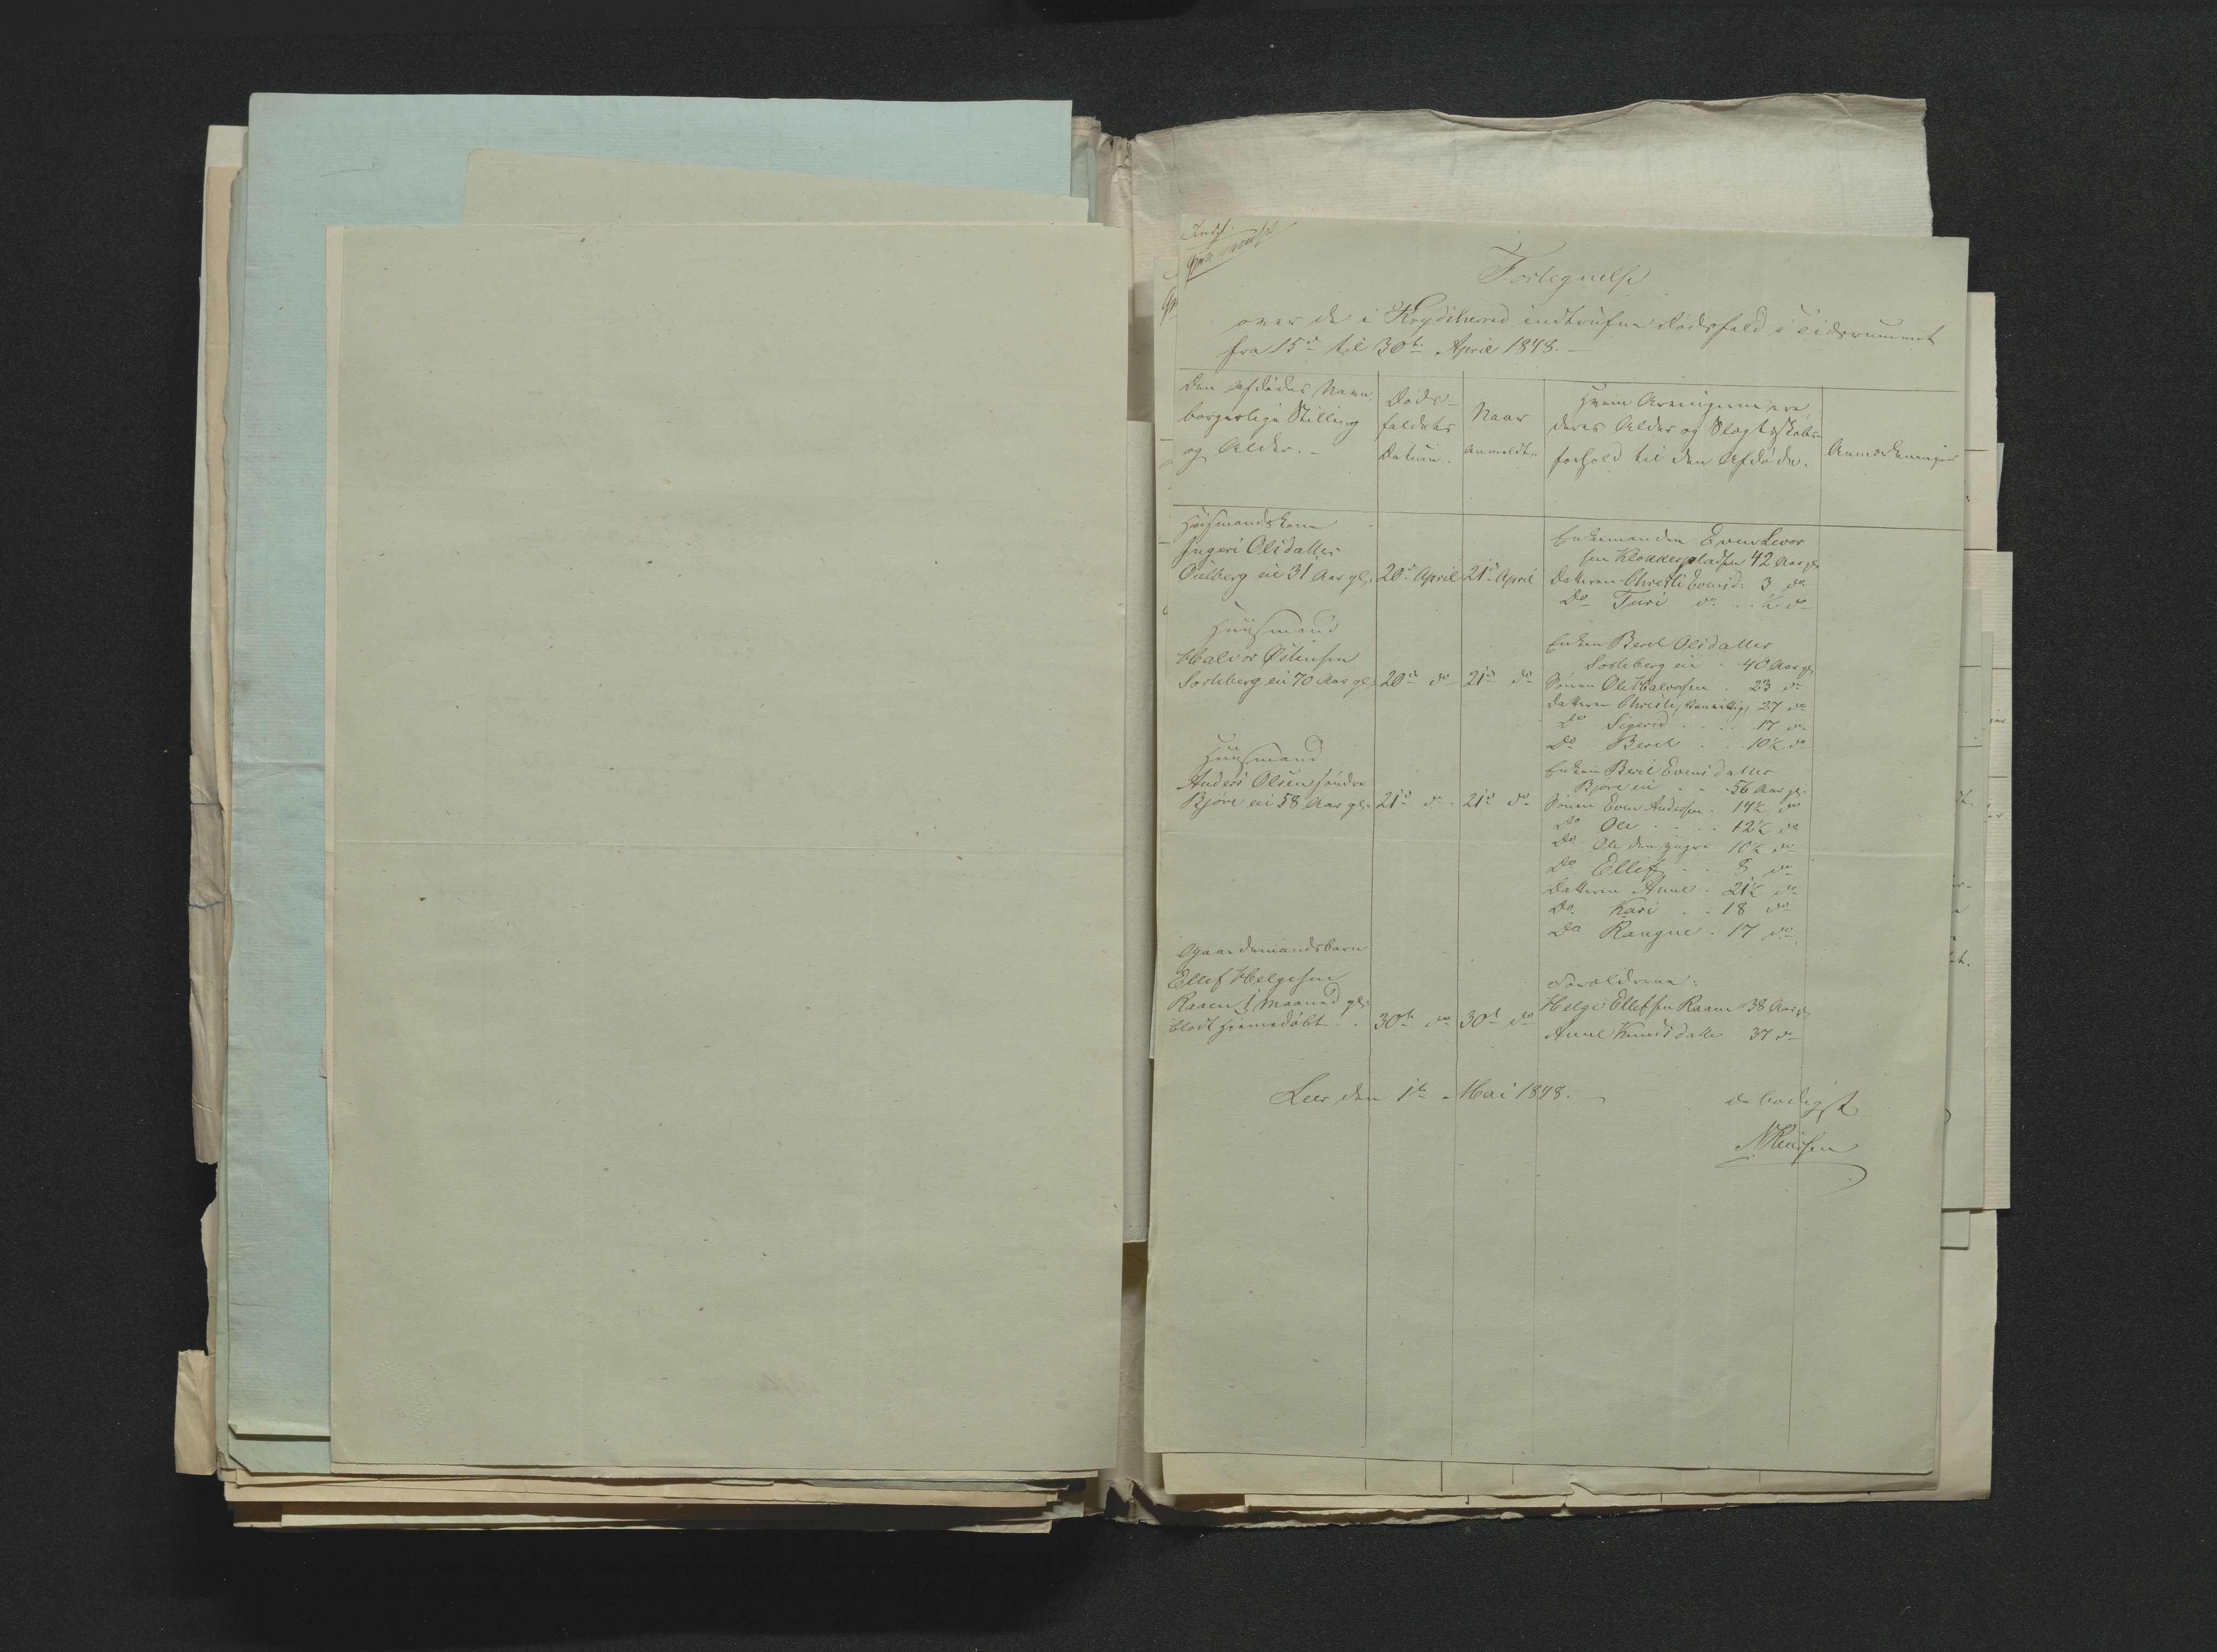 Fortegnelse
over de i Krydsherred indtrufne Dødsfald i Tidsrummet
fra 15de til 30te April 1848. –
Den Afdødes Navn,
borgerlige Stilling
og Alder. –
Døds-
faldets
Datum.
Naar
anmeldt.
Hvem Arvingerne ere,
deres Alder og Slægtskabs-
forhold til den Afdøde.
Anmærkninger
Huusmandskone
Ingeri Olsdatter
eie 31 Aar gl. 20de April 21de April
Enkemanden Even Levor
sen Kloppepladsen 42 Aar gl.
Datteren Christi Evensd. 3 do
Do Turi do . . ½ do
Huusmand
Halvor Østensen
Sorteberg eie 70 Aar gl. 20de do 21de do
Enken Beret Olsdatter
Sorteberg eie - 40 Aar gl.
Sønnen Ole Halvorsen . 23 do
Datteren Christi, 27 do
Do Sigerid . . . 17 do
Do Beret . . 10½ do
Huusmand
Anders Olsen søndre
Bjøre eie 58 Aar gl. 21de do 21de do
Enken Beret Evensdatter
Bjøre eie - - 56 Aar gl.
Sønnen Even Andersen . 14½ do
Do Ole . . . . 12½ do
Do Ole den yngre 10½ do
Do Ellef . . . 8 do
Datteren Anne . 21½ do
Do Kari . . 18 do
Do Rangne . 17 do
Gaardmandsbarn
Ellef Helgesen
Raaen 1 Maaned gl.
blot hjemmedøbt . . 30te do 30te do
Forældrene:
Helge Ellefsen Raaen 38 Aar gl.
Anne Knudsdatter 37 do
Leer den 1te Mai 1848. –
ærbødigst